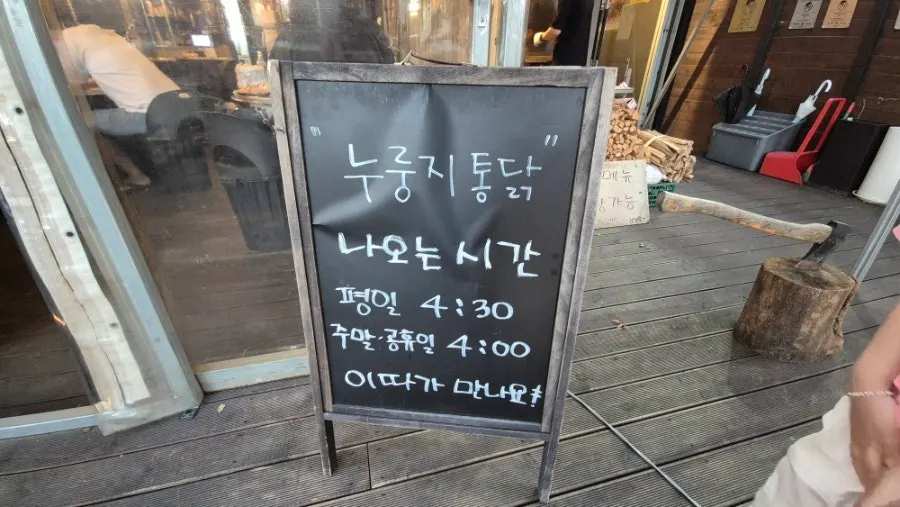 "누룽지통닭"
나오는 시간
평일 4:30
주말·공휴일 4:00
이따가 만나요!
메뉴
가능